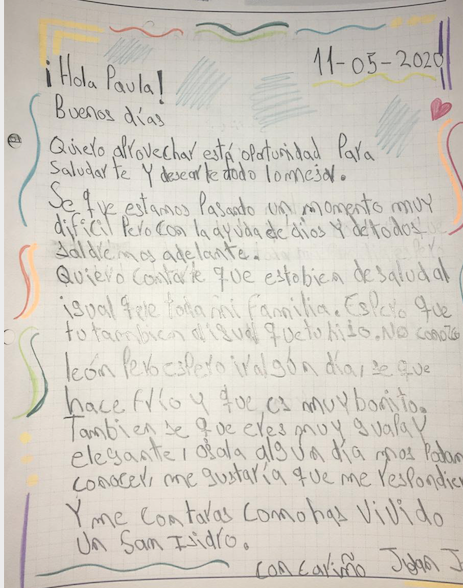 11-05-2020
¡Hola Paula!
Buenos días
Quiero aprovechar está oportunidad Para
Saludarte Y desearte todo lo mejor.
Se que estamos Pasando un momento muy
dificil Pero con la ayuda de dios Y de todos
saldremos adelante.
Quiero contarte que esto bien de salud al
igual que toda mi familia. Espero que
tu tambien al igual que tu hijo. No conozco
león Pero espero ir algún día, se que
hace frio y que es muy bonito.
Tambien se que eres muy guapa y
elegante, ojala algún día nos Podam
conocer, me gustaría que me respondier
Y me contaras como has vivido
un San Isidro.
con cariño Juan J